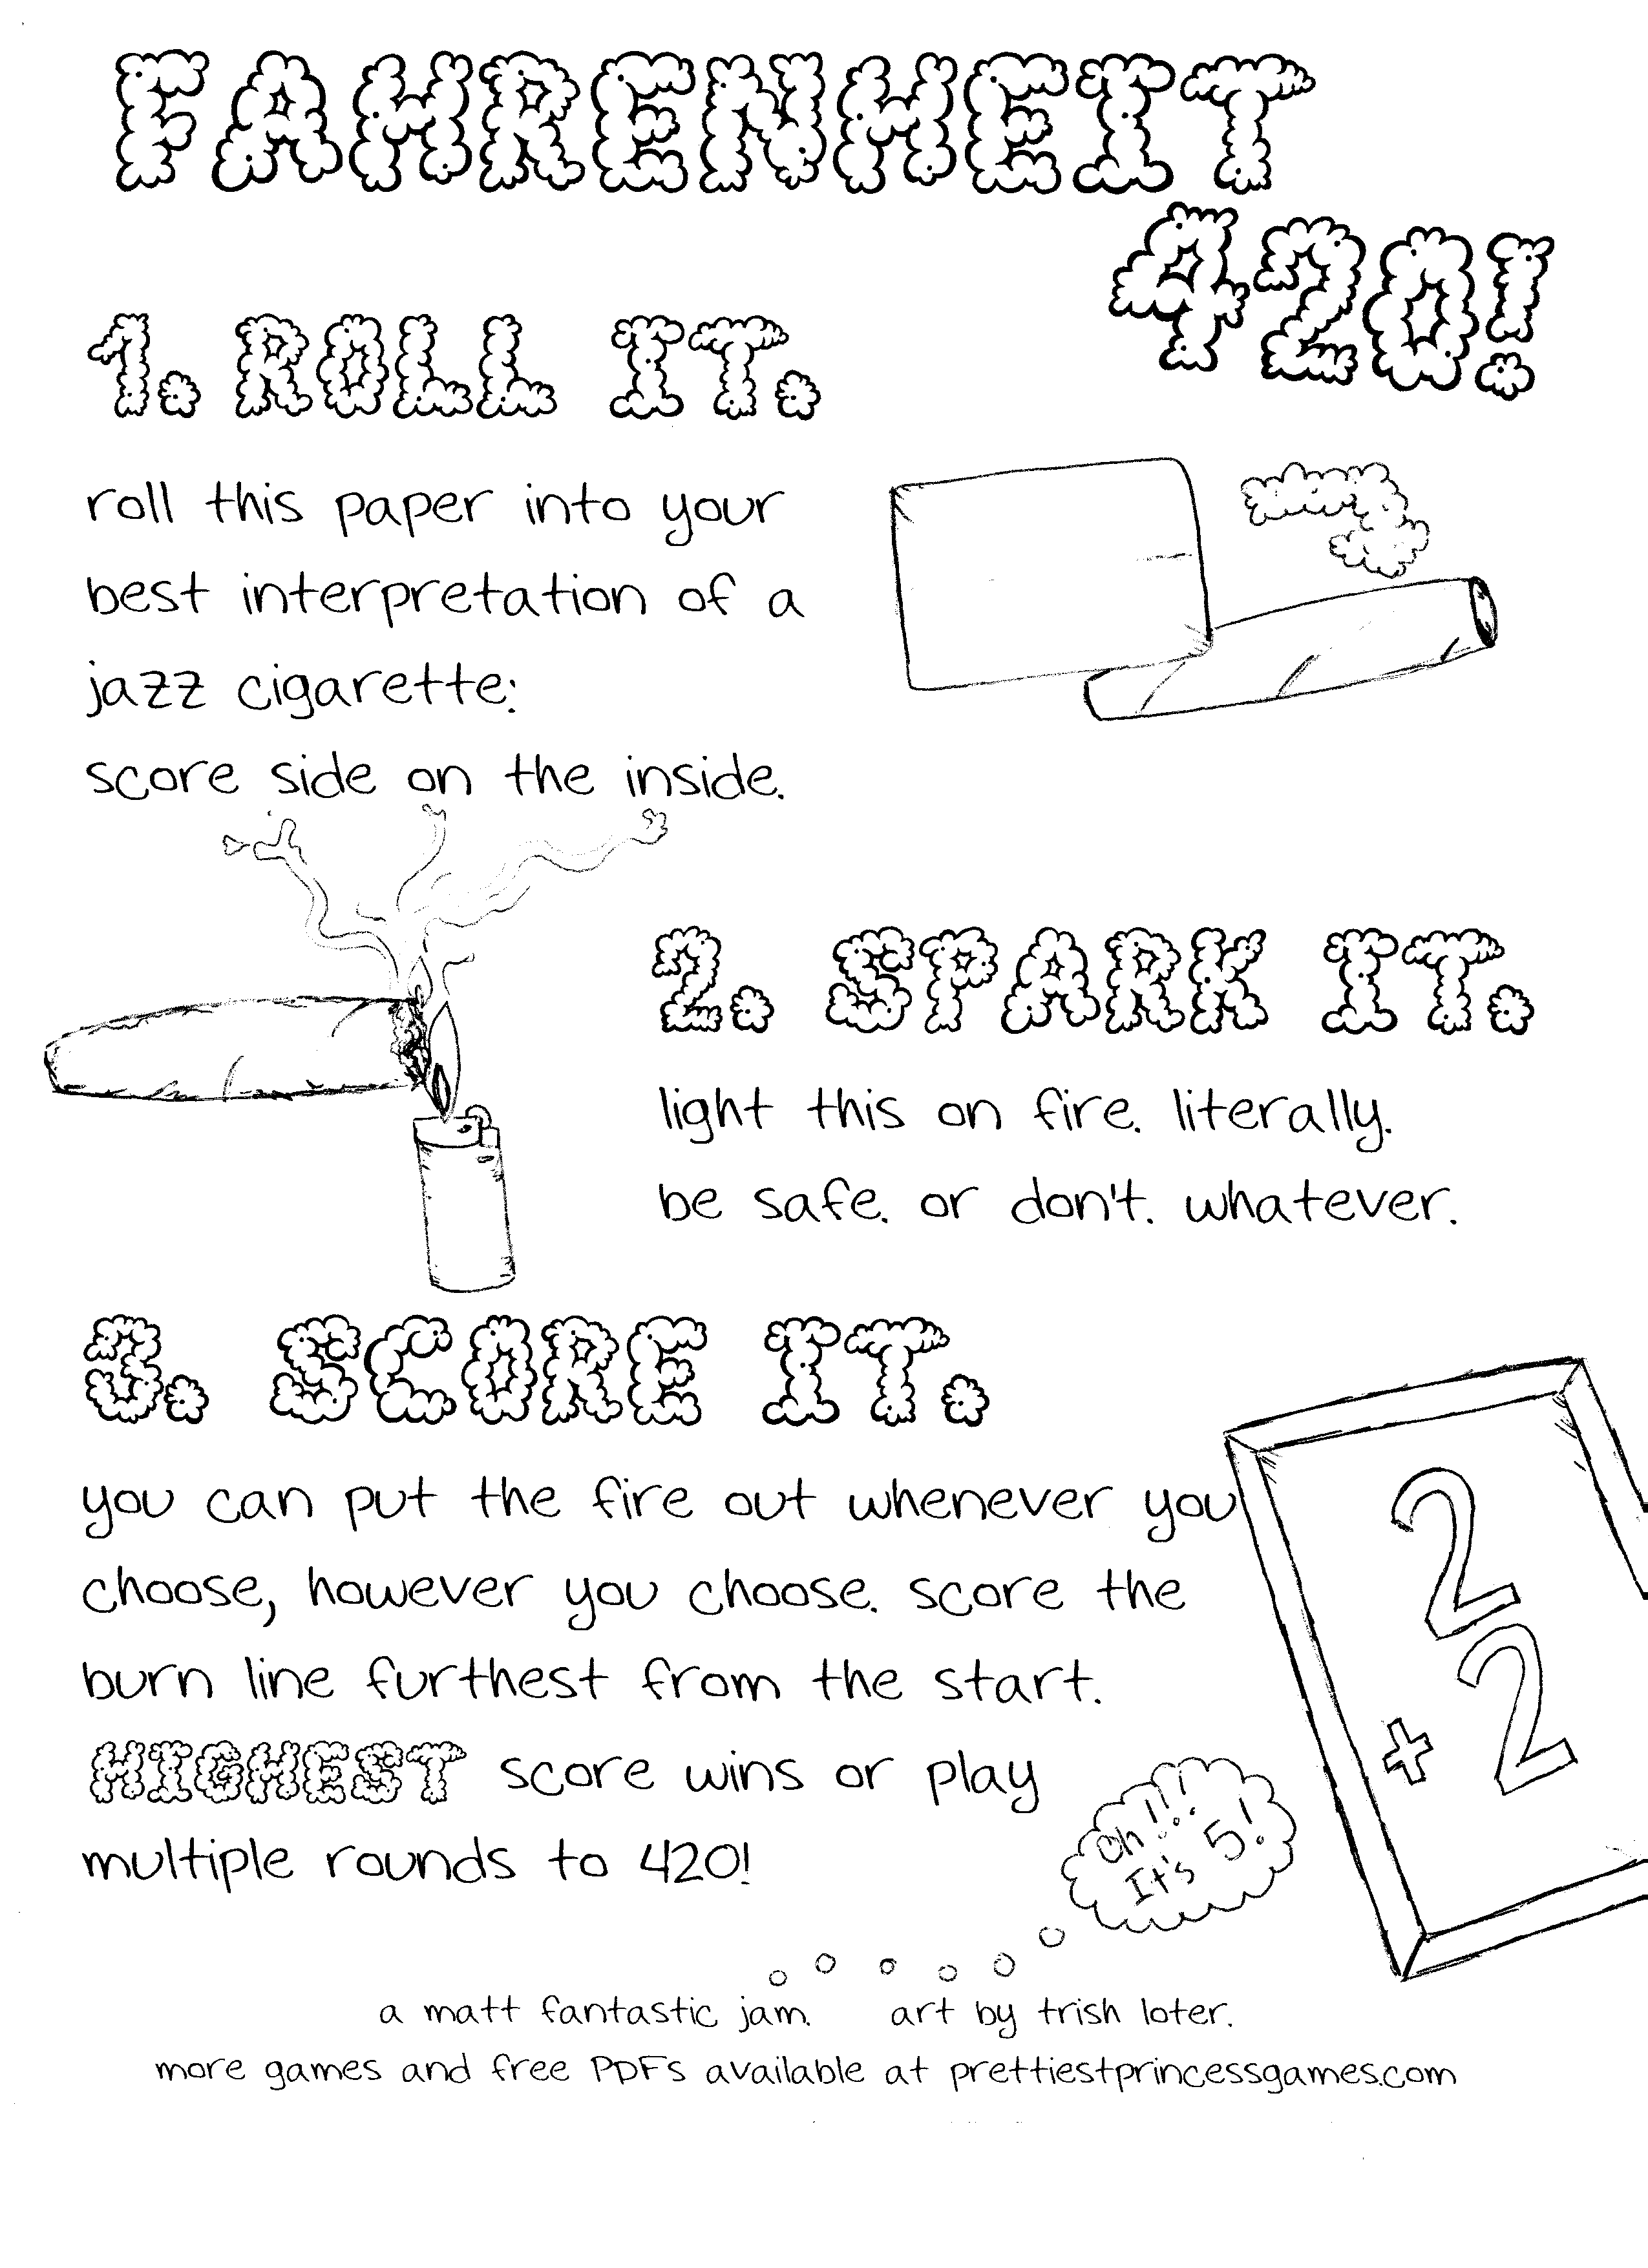 FAHRENHEIT
420!
1. ROLL IT.
roll this paper into your
best interpretation of a
jazz cigarette:
score side on the inside.
2. SPARK IT.
light this on fire. literally.
be safe. or don't. whatever.
3. SCORE IT.
you can put the fire out whenever you
choose, however you choose. score the
burn line furthest from the start.
HIGHEST score wins or play
multiple rounds to 420!
2
+ 2
Oh!!..
It's 5!
a matt fantastic jam. art by trish loter.
more games and free PDFs available at prettiestprincessgames.com